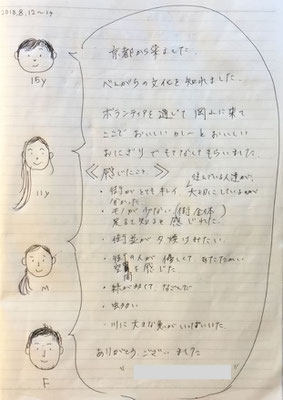 2018.8.12~14
京都から来ました。
べんがらの文化を知れました。
ボランティアを通じて岡山に来て
ここで おいしいカレーと おいしい
おにぎりで もてなしてもらいました。
≪感じたこと≫
住んでいる人達が、
・街がとてもキレイ 大切にしているのが
分かった。
・モノが少ない(街全体)
見て知るを感じれた。
・街並が夕焼けみたい
・街の人が優しくて あたたかい
空間を感じた
・緑が多くて、なごんだ
・虫多い
・川に大きな魚がいっぱいいた。
ありがとうございました
15y
11y
M
F